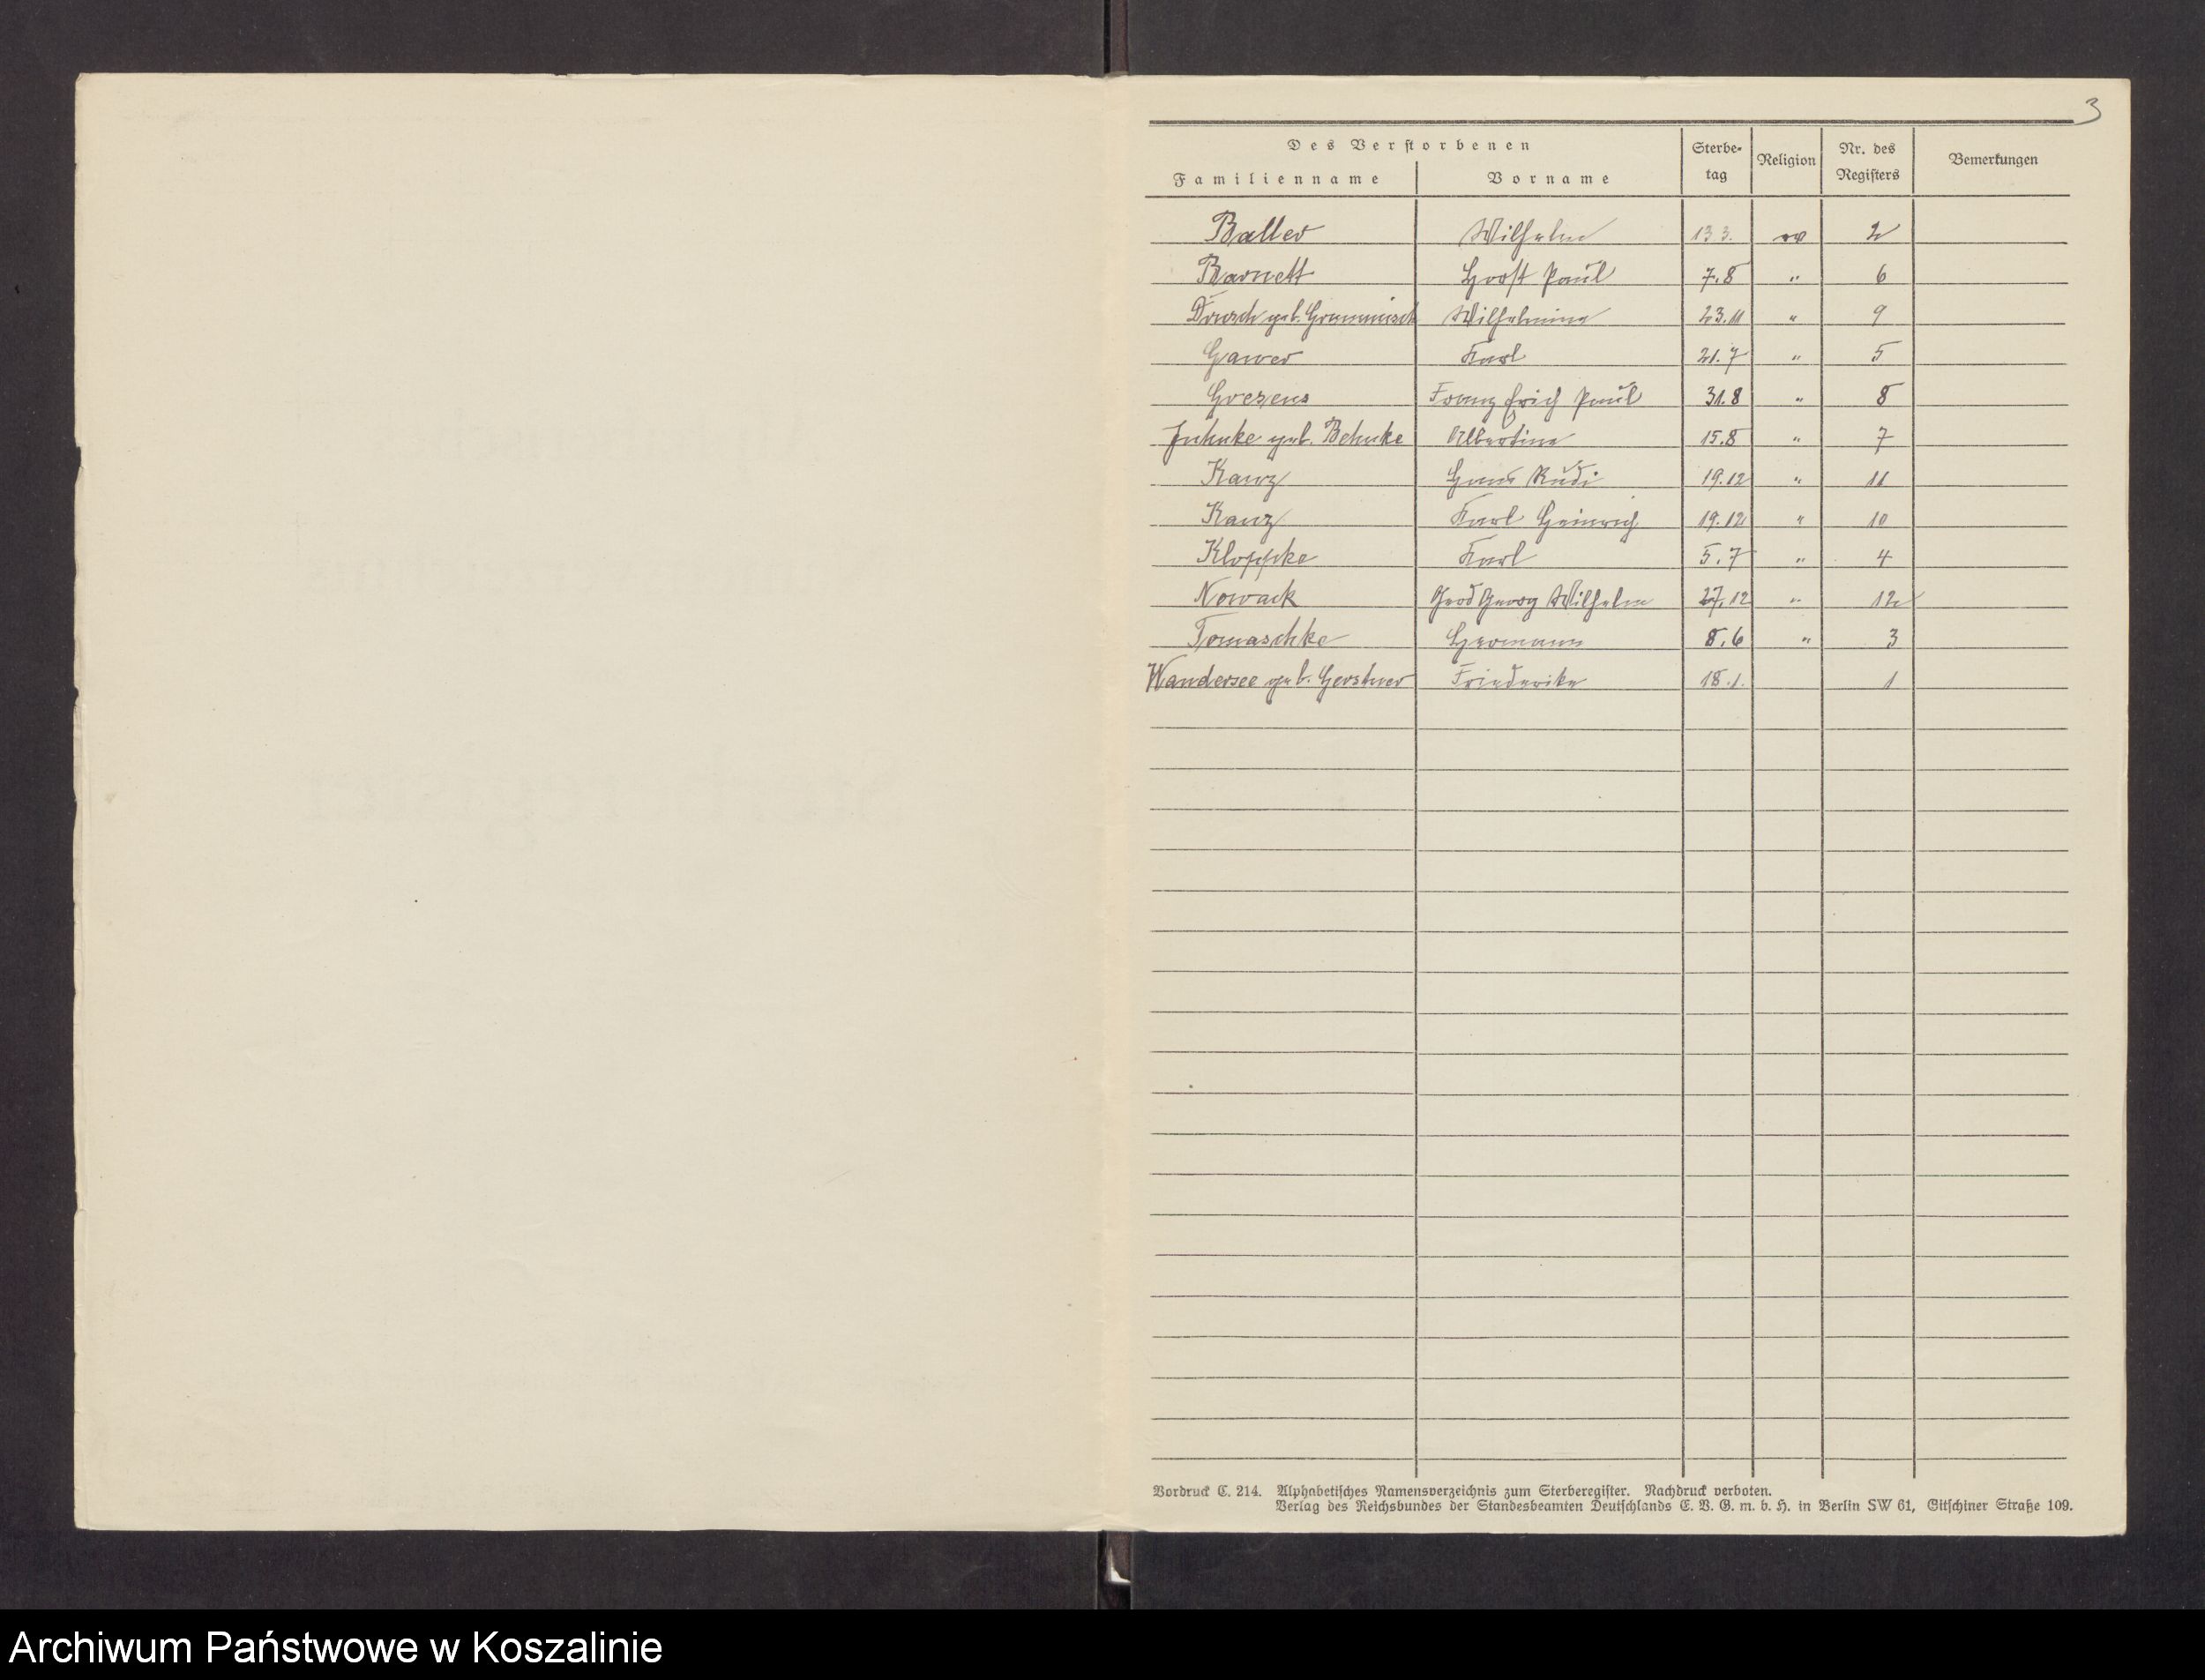 3
Des Verstorbenen Sterbe-tag Religion Nr. des Registers Bemerkungen
Familienname Vorname
Baller Wilhelm 13.3. ev 2
Barnett Horst Paul 7.8 " 6
geb. Grammusch Wilhelmine 23.11 " 9
Gawer Karl 21.7 " 5
Franz Erich Paul 31.8 " 8
Juhnke geb. Behnke Albertine 15.8 " 7
Kanz Hans Rudi 19.12 " 11
Kanz Karl Heinrich 19.12 " 10
Kloppke Karl 5.7 " 4
Nowack Gerd Georg Wilhelm 27.12 " 12
Tomaschke Hermann 8.6 " 3
Wandersee geb. Gerstner Friederike 18.1. 1
Vordruck C. 214. Alphabetisches Namensverzeichnis zum Sterberegister. Nachdruck verboten.
Verlag des Reichsbundes der Standesbeamten Deutschlands E. V. G. m. b. H. in Berlin SW 61, Gitschiner Straße 109.
Archiwum Państwowe w Koszalinie